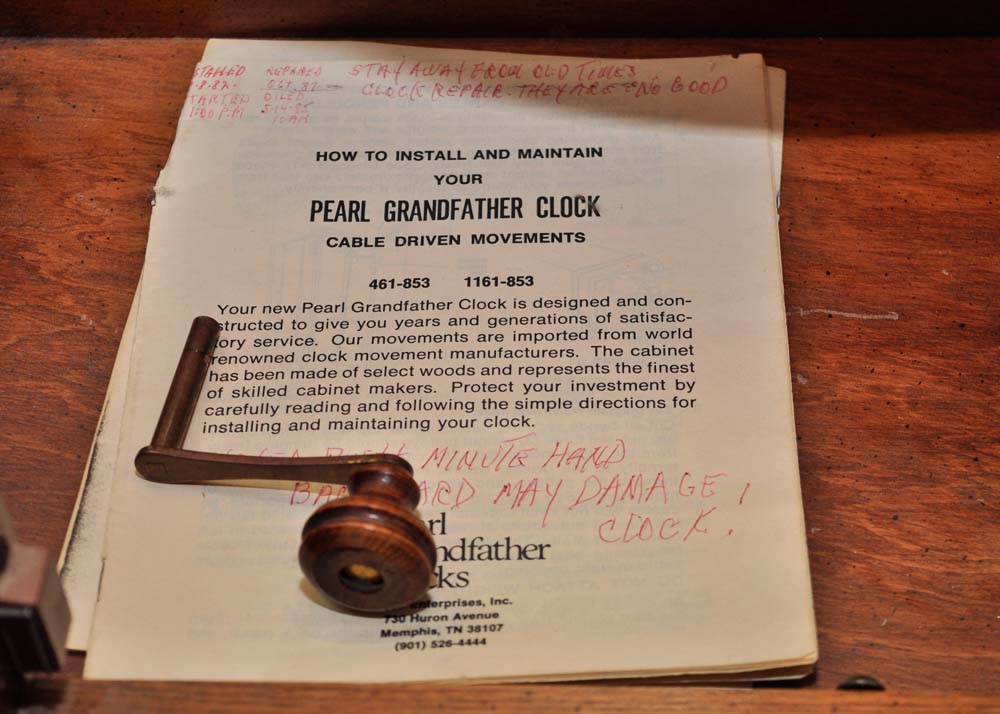 STALLED REPAIRED STAY AWAY FROM OLD TIMES
-8-82 OCT. 82 — CLOCK REPAIR. THEY ARE NO GOOD
OILED
5-14-85
10 AM
HOW TO INSTALL AND MAINTAIN
YOUR
PEARL GRANDFATHER CLOCK
CABLE DRIVEN MOVEMENTS
461-853 1161-853
Your new Pearl Grandfather Clock is designed and con-
structed to give you years and generations of satisfac-
tory service. Our movements are imported from world
renowned clock movement manufacturers. The cabinet
has been made of select woods and represents the finest
of skilled cabinet makers. Protect your investment by
carefully reading and following the simple directions for
installing and maintaining your clock.
PUSH MINUTE HAND
MAY DAMAGE
CLOCK.
rl
ndfather
cks
Enterprises, Inc.
730 Huron Avenue
Memphis, TN 38107
(901) 526-4444